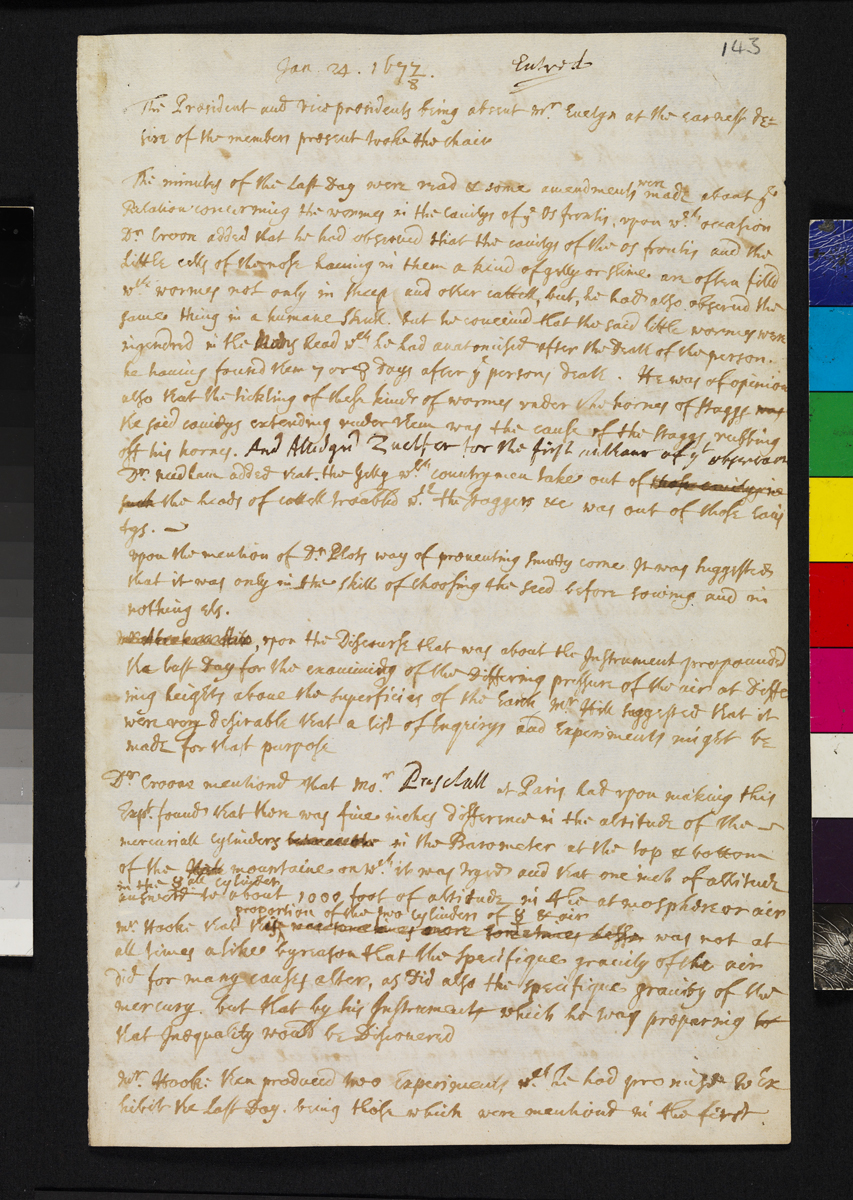 143
Jan 24. 1677/8. Entred
The President and vice presidents being absent Mr. Evelyn at the earnest de=
sire of the members present tooke the chair
The minutes of the Last Day were read & some amendments were made about ye
Relation concerning the wormes in the cavitys of ye Os frontis, upon wch occasion
Dr. Croon added that he had observed that the cavitys of the os frontis and the
Little cells of the nose having in them a kind of gelly or slime are often filld
wth wormes not only in sheep and other cattell, but, he had also observd the
same thing in a humane skull. but he conceivd that the said little wormes were
ingendred in the head wch he had anatomised after the Death of the person.
he having found them 7 or 8 Days after ye persons death. He was of opinion
also that the tickling of these kind of wormes under the hornes of staggs
the said cavitys extending under them was the cause of the staggs rubbing
off his hornes. And Alledgd for the first author of yt observation
Dr. needham added that the Jelly wch countrymen take out of those cavitys in
such the heads of cattell troubled wth the staggers &c was out of those cavi
tys.
upon the mention of Dr. Plots way of preventing smutty corne It was suggested
that it was only in the skill of choosing the seed before sowing and in
nothing els.
upon the Discourse that was about the Instrument propounded
the last Day for the examining of the Differing pressure of the air at Diffe
ring heights above the superficies of the Earth Mr Hill suggested that it
were very desirable that a list of Inquirys and Experiments might be
made for that purpose
Dr. Croone mentiond that Mor. Paschall at Paris had upon making this
Expt. found that there was five inches difference in the altitude of the
mercuriall cylinders in the Barometer at the top & bottom
of the mountaine on wch it was tryed and that one inch of altitude
in the ☿all cylinder
answerd to about 1000 foot of altitude in the atmosphere or air
proportion of the two cylinders of ☿ & air
mr. Hooke that the was not at
all times alike by reason that the specifique gravity of the air
did for many causes alter, as did also the specifique gravity of the
mercury. but that by his Instruments which he was preparing
that Inequality would be Discovered
Mr. Hooke then produced two Experiments wch he had promised to Ex
hibit the Last Day. being those which were mentiond in the first